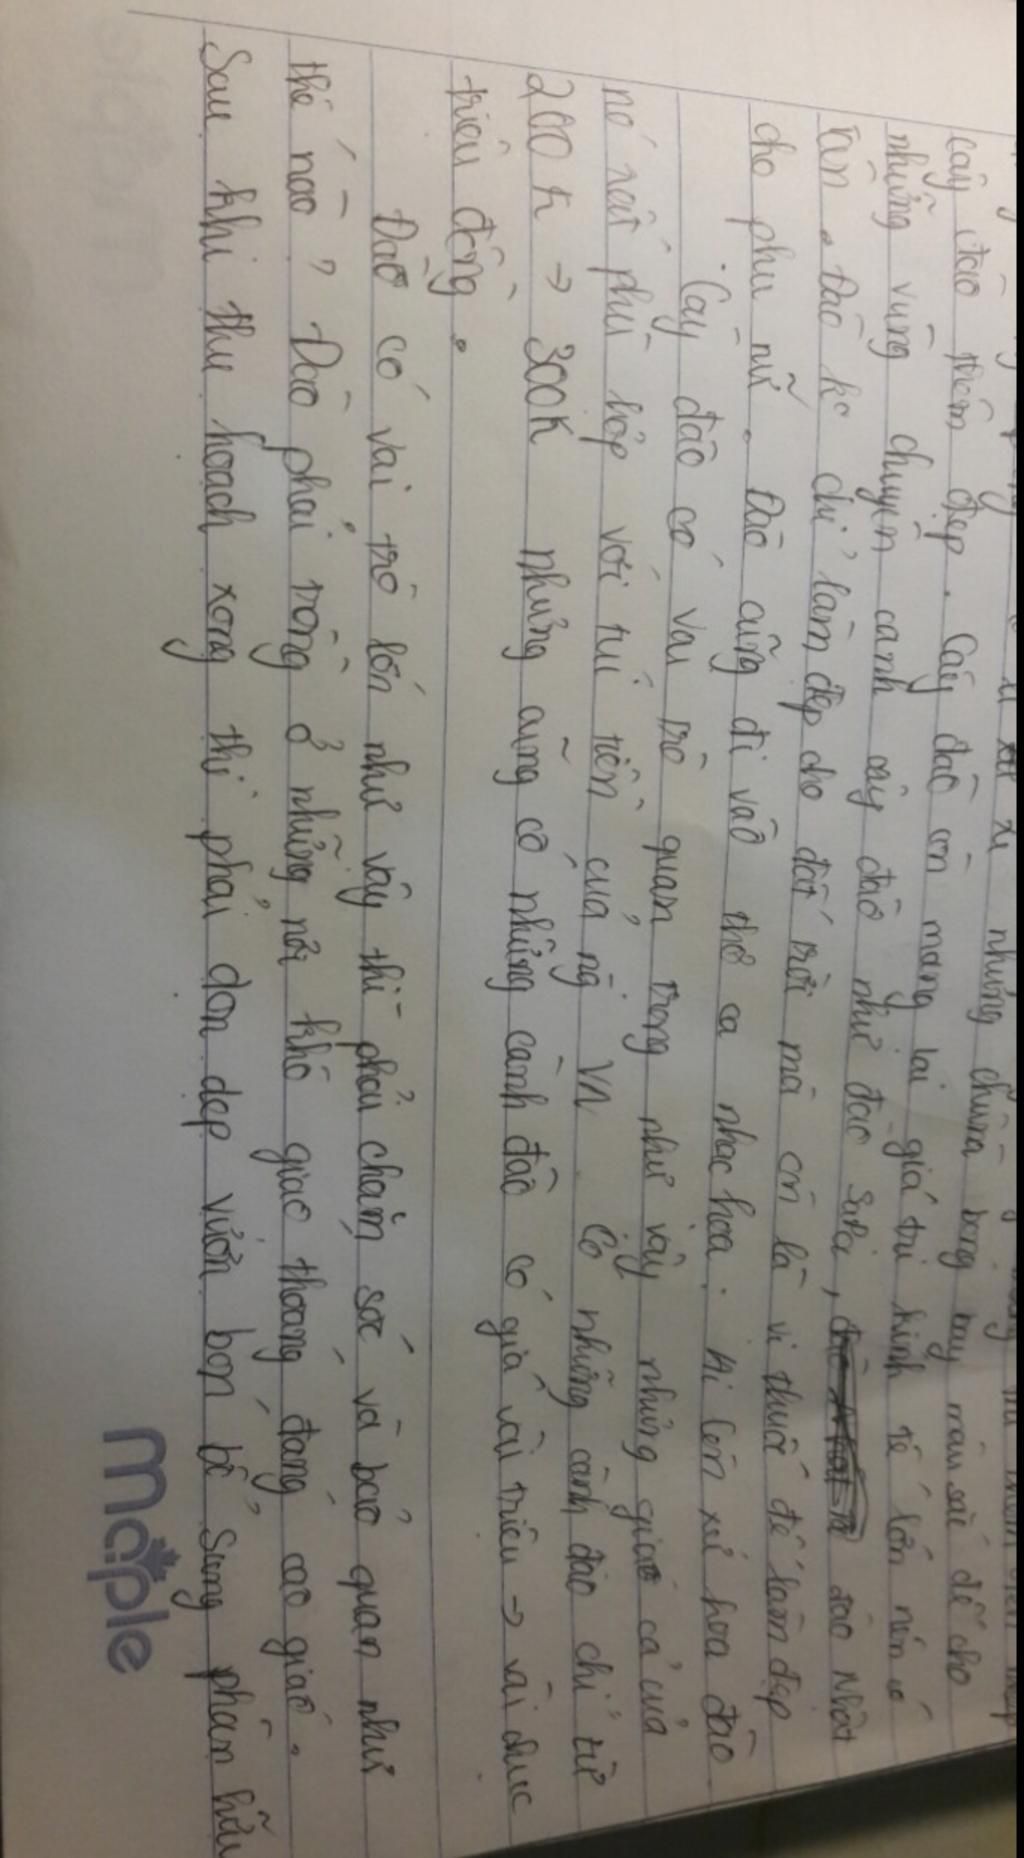 xù xì nhưng chứa
cây đào thêm đẹp. Cây đào còn mang lại giá trị kinh tế lớn nên có
những vùng chuyên canh cây đào như đào Sapa, đào Nhật
Tân. Đào ko chỉ làm đẹp cho đất trời mà còn là vị thuốc để làm đẹp
cho phụ nữ. Đào cũng đi vào thơ ca nhạc hoạ. hoa đào
Cây đào có vai trò quan trọng như vậy nhưng giá cả của
nó rất phù hợp với túi tiền của ng VN. Có những cành đào chỉ từ
200K → 300K nhưng cũng có những cành đào có giá vài triệu → vài chục
triệu đồng.
Đào có vai trò lớn như vậy thì phải chăm sóc và bảo quản như
thế nào? Đào phải trồng ở những nơi khô giáo thoáng đãng cao giáo.
Sau khi thu hoạch xong thì phải dọn dẹp vườn bón bổ sung phân hữu
maple